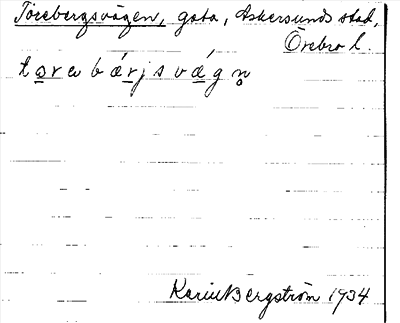 Torebergsvägen, gata, Askersunds stad,
Örebro l.
tạrebǽrjsvǽgn̥
Karin Bergström 1934